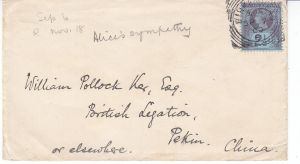 Sep 6
R Nov. 18
Alice's sympathy
William Pollock Ker, Esq.
British Legation,
Pekin,
or elsewhere. China.